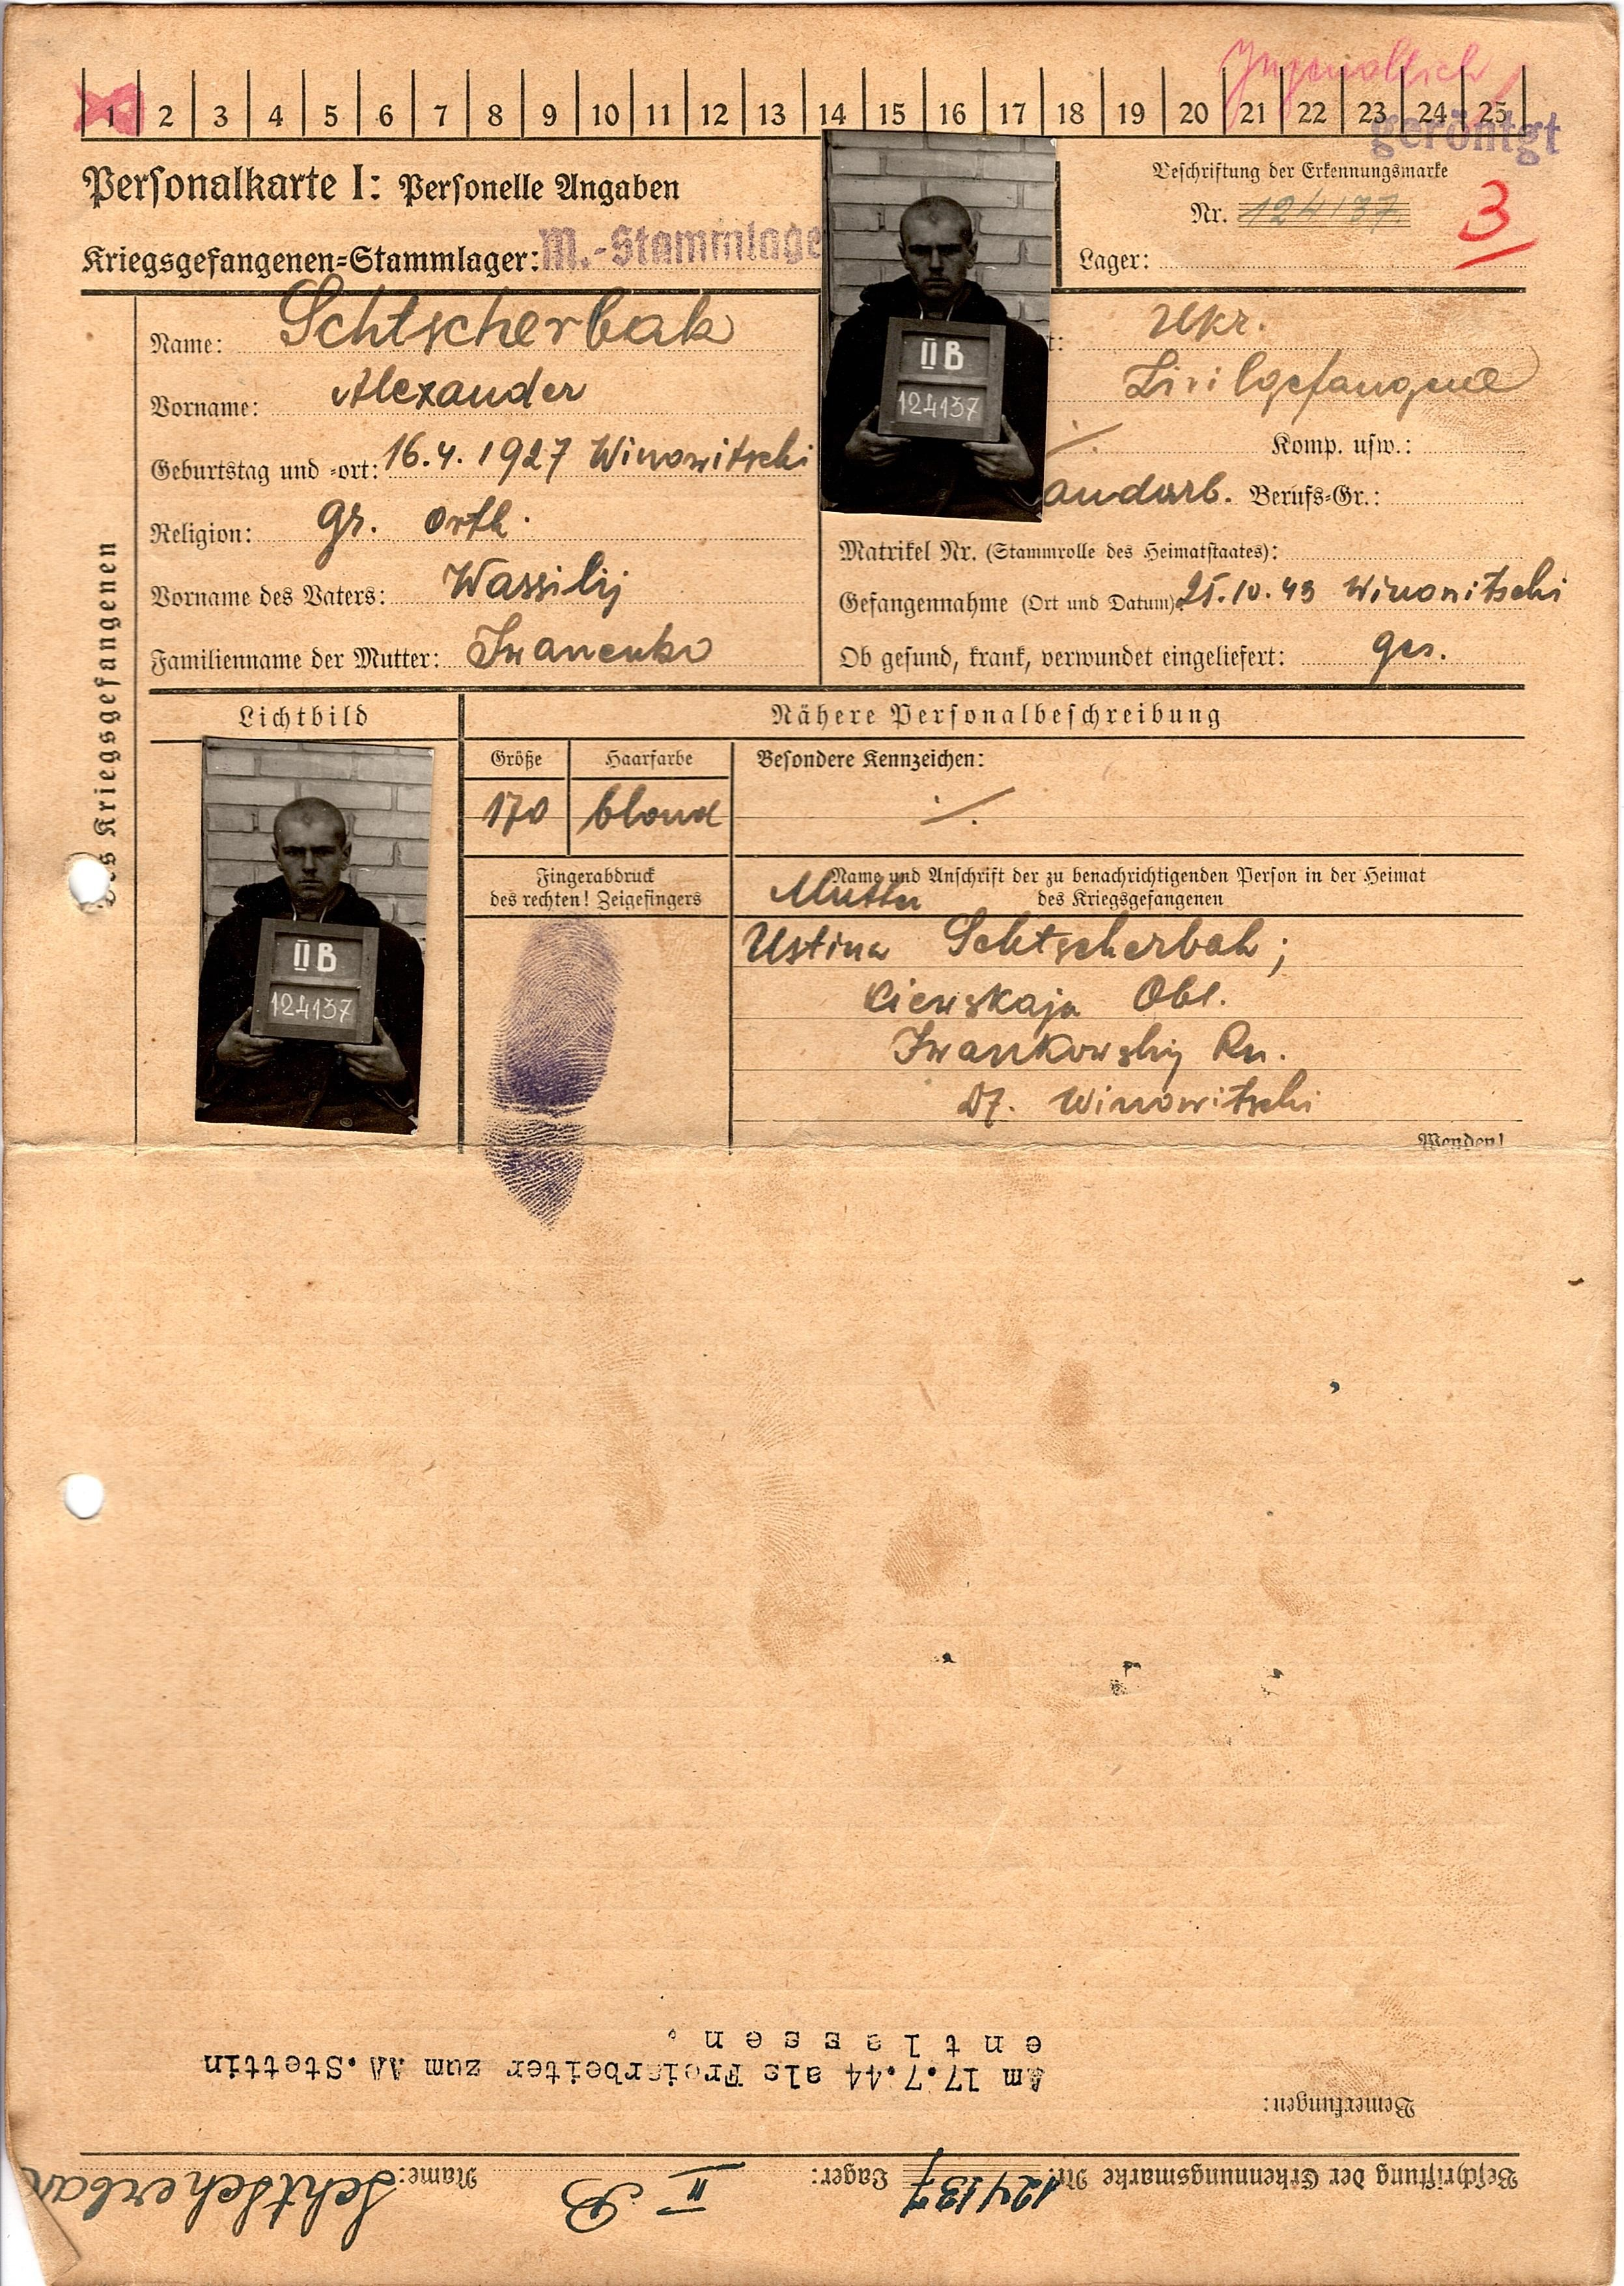 Jugendlich
1 2 3 4 5 6 7 8 9 10 11 12 13 14 15 16 17 18 19 20 21 22 23 24 25
geröntgt
Personalkarte I: Personelle Angaben
Kriegsgefangenen-Stammlager: M.-Stammlage
Beschriftung der Erkennungsmarke
Nr. 124137
3
Lager:
Name: Schtscherbak
Vorname: Alexander
Geburtstag und -ort: 16.4.1927 Winowitschi
Religion: gr. orth.
Vorname des Vaters: Wassilij
Familienname der Mutter: Iwanenko
II B
124137
t: Ukr.
Zivilgefangene
Komp. usw.:
andarb. Berufs-Gr.:
Matrikel Nr. (Stammrolle des Heimatstaates):
Gefangennahme (Ort und Datum) 25.10.43 Winowitschi
Ob gesund, krank, verwundet eingeliefert: ges.
Des Kriegsgefangenen
Lichtbild
II B
124137
Nähere Personalbeschreibung
Größe Haarfarbe Besondere Kennzeichen:
170 blond ./.
Fingerabdruck
des rechten! Zeigefingers
Name und Anschrift der zu benachrichtigenden Person in der Heimat
des Kriegsgefangenen
Mutter
Ustina Schtscherbak;
Kiewskaja Obl.
Iwankowskij Rn.
Df. Winowitschi
Wenden!
Beschriftung der Erkennungsmarke Nr. 124137 Lager: II B Name: Schtscherbak
Bemerkungen:
Am 17.7.44 als Freiarbeiter zum AA.Stettin
entlassen.